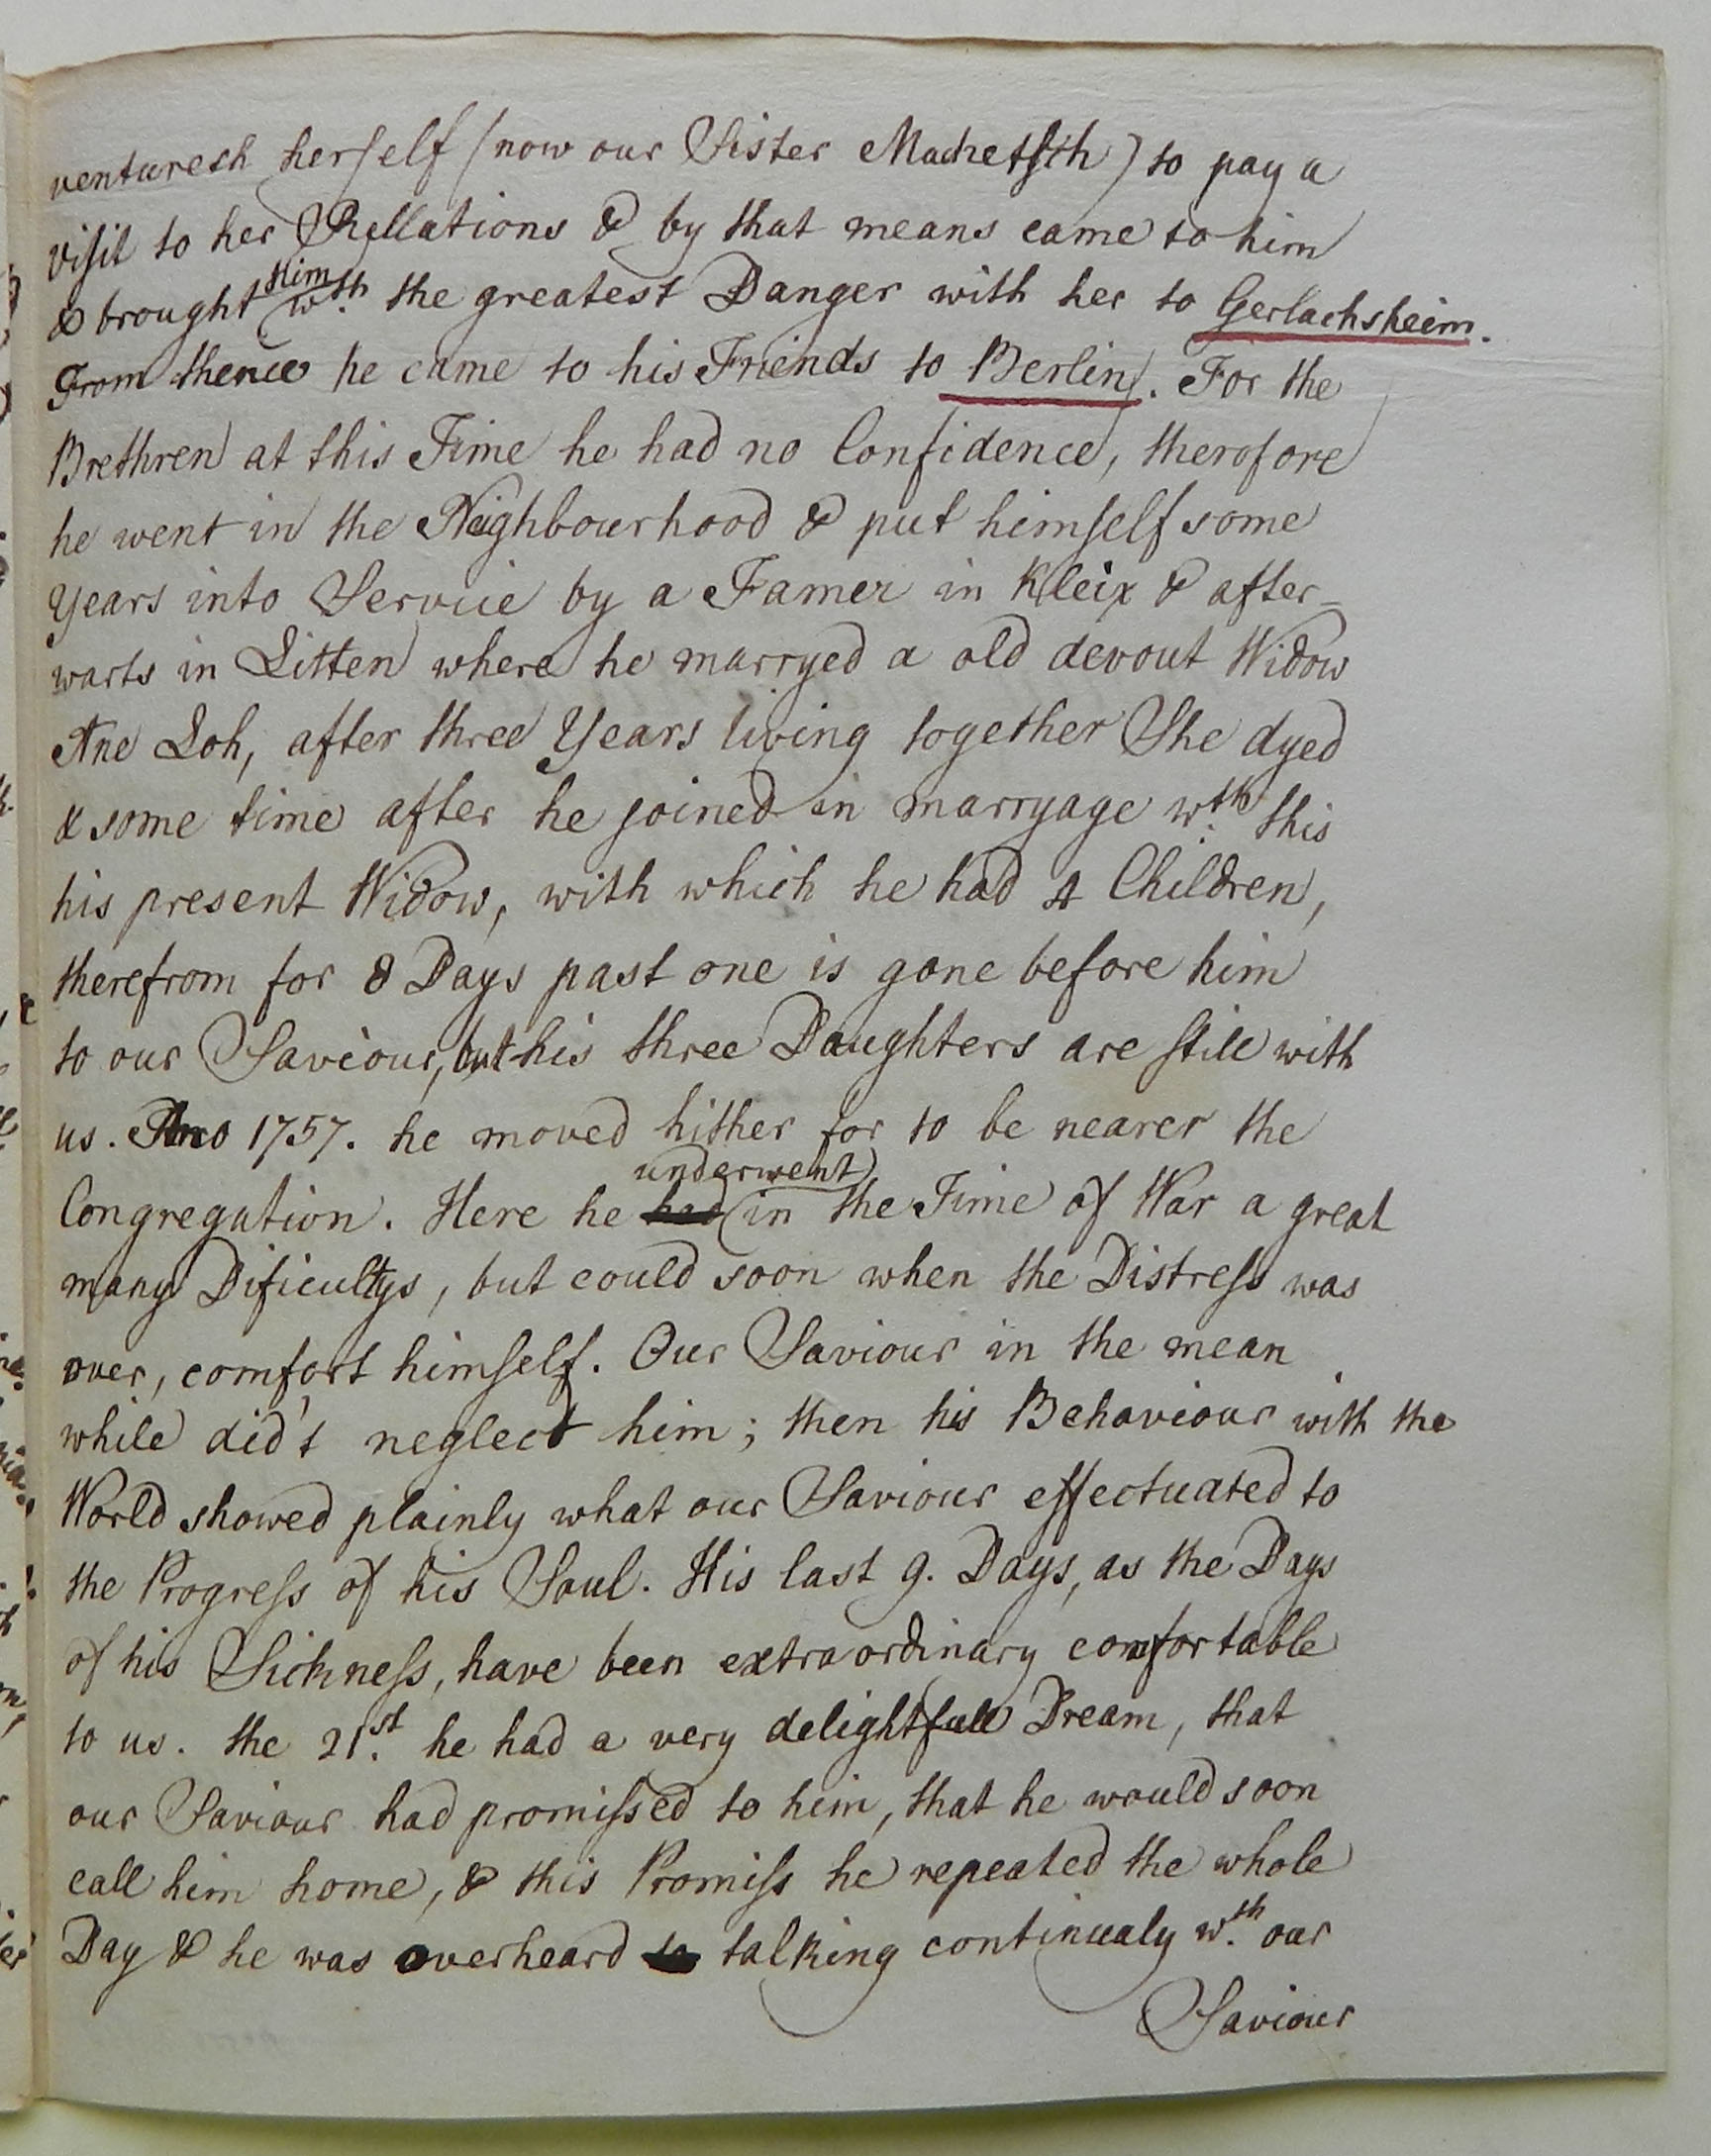 ventureth herself (now our Sister Machetsch) to pay a
visit to her Rellations & by that means came to him
& brought him wth. the greatest Danger with her to Gerlachsheim.
From thence he came to his Friends to Berlin. For the
Brethren at this Time he had no Confidence, therofore
he went in the Neighbourhood & put himself some
Years into Service by a Famer in Kleix & after-
warts in Litten where he marryed a old devout Widow
Ane Loh, after three Years living together She dyed
& some time after he joined in marryage wth. this
his present Widow, with which he had 4 Children,
therefrom for 8 Days past one is gone before him
to our Saviour, but his three Daughters are still with
us. Ano 1757. he moved hither for to be nearer the
Congregation. Here he had underwent in the Time of War a great
many Dificultys, but could soon when the Distress was
over, comfort himself. Our Saviour in the mean
while did't neglect him; then his Behaviour with the
World showed plainly what our Saviour effectuated to
the Progress of his Soul. His last 9. Days, as the Days
of his Sickness, have been extraordinary comfortable
to us. the 21st. he had a very delightfull Dream, that
our Saviour had promissed to him, that he would soon
call him home, & this Promiss he repeated the whole
Day & he was overheard to talking continualy wth. our
Saviour